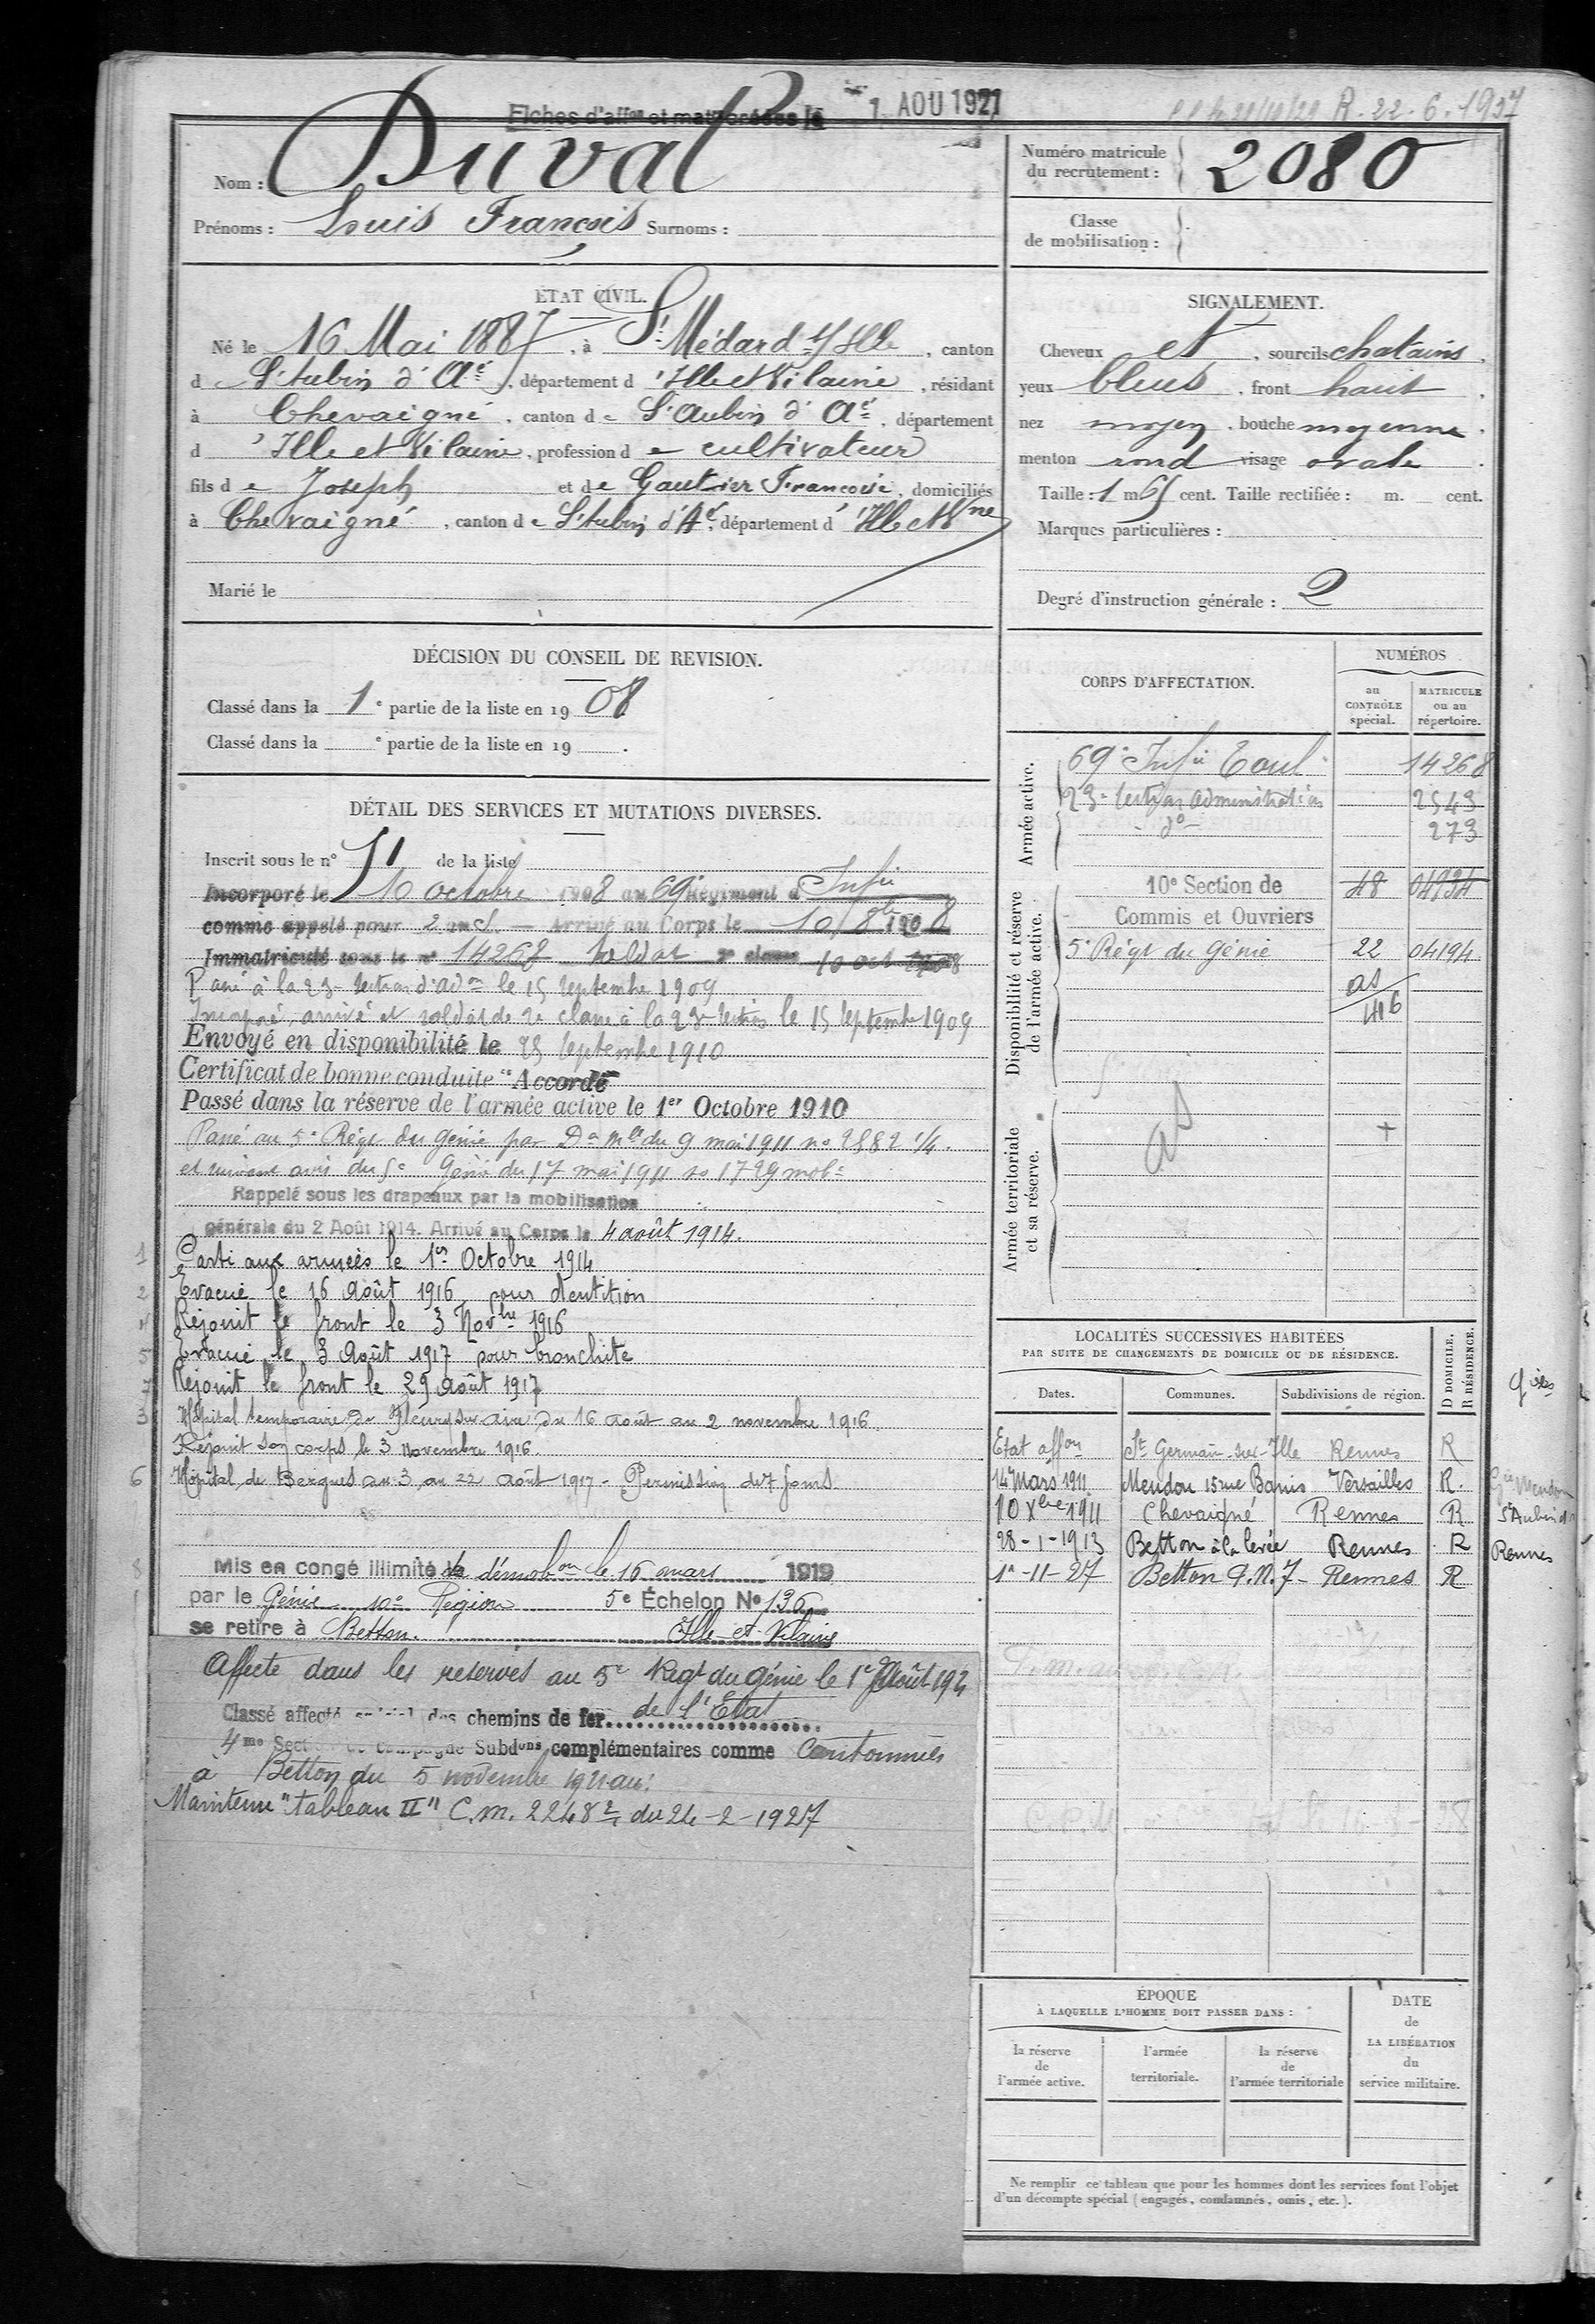 Fiches d'aff<sup>on</sup> et mat créées le 1 AOU 1921
R. 22.6.1937
Nom : Duval
Prénoms : Louis François Surnoms :
Numéro matricule du recrutement : 2080
Classe de mobilisation :
ÉTAT CIVIL.
Né le 16 Mai 1887, à St Médard s/ Ille, canton
d e St Aubin d'Aé, département d 'Ille et Vilaine, résidant
à Chevaigné, canton d e St Aubin d'Aé, département
d 'Ille et Vilaine, profession d e cultivateur
fils d e Joseph et d e Gautier Françoise, domiciliés
à Chevaigné, canton d e St Aubin d'Aé, département d 'Ille et Vne
Marié le
SIGNALEMENT.
Cheveux et, sourcils chatains,
yeux bleus, front haut,
nez moyen, bouche moyenne,
menton rond visage ovale.
Taille : 1 m 65 cent. Taille rectifiée : m. cent.
Marques particulières :
Degré d'instruction générale : 2
DÉCISION DU CONSEIL DE REVISION.
Classé dans la 1e partie de la liste en 1908
Classé dans la e partie de la liste en 19 .
DÉTAIL DES SERVICES ET MUTATIONS DIVERSES.
Inscrit sous le n° 51 de la liste
Incorporé le 10 octobre 1908 au 69e Régiment d' Infie
comme appelé pour 2 ans. — Arrivé au Corps le 10 8bre 1908
Immatriculé sous le n° 14268 soldat 2e classe 10 oct 1908
Passé à la 23e section d'adon le 15 septembre 1909
Incorporé, arrivé et soldat de 2e classe à la 23e section le 15 septembre 1909
Envoyé en disponibilité le 25 septembre 1910
Certificat de bonne conduite "Accordé"
Passé dans la réserve de l'armée active le 1er Octobre 1910
Passé au 5e Régt du Génie par Don mlle du 9 mai 1911 no 2582 1/4.
et suivant avis du 5e Génie du 17 mai 1911 no 1729 mobe
Rappelé sous les drapeaux par la mobilisation
générale du 2 Août 1914. Arrivé au Corps le 4 août 1914.
1 Parti aux armées le 1er Octobre 1914
2 Evacué le 16 Août 1916 pour dentition
4 Rejoint le front le 3 Novbre 1916
5 Evacué le 3 Août 1917 pour bronchite
7 Rejoint le front le 29 Août 1917
3 Hôpital temporaire de Fleury sur aire du 16 août au 2 novembre 1916
Rejoint son corps le 3 novembre 1916.
6 Hôpital de Bergues du 3 au 22 août 1917 - Permission de 7 jours
8 Mis en congé illimité de démobon le 16 mars 1919
par le Génie 10e Région 5e Échelon No 136
se retire à Betton. Ille-et-Vilaine
Affecté dans les reserves au 5e Regt du génie le 1er Août 192
Classé affecté spécial des chemins de fer de l'Etat
4me Section de campagne Subdons complémentaires comme Cantonnier
à Betton du 5 novembre 1921 au:
Maintenu "tableau II" C.m. 2248 2/4 du 24-2-1927
CORPS D'AFFECTATION.
NUMÉROS
au CONTRÔLE spécial.
MATRICULE ou au répertoire.
Armée active.
69e Infie Toul 14268
23e section administration 2543
- do - 273
Disponibilité et réserve de l'armée active.
10e Section de 48 04934
Commis et Ouvriers
5e Régt du Génie 22 04194
as
416
Armée territoriale et sa réserve.
as
+
LOCALITÉS SUCCESSIVES HABITÉES
PAR SUITE DE CHANGEMENTS DE DOMICILE OU DE RÉSIDENCE.
D DOMICILE.
R RÉSIDENCE.
Dates. Communes. Subdivisions de région.
Etat affon St Germain-sur-Ille Rennes R
14 Mars 1911 Meudon 15 rue Banis Versailles R. Gie Meudon
10 Xbre 1911 Chevaigné Rennes R St Aubin d'A
28-1-1913 Betton à la levée Rennes R Rennes
1r-11-27 Betton P.N.7- Rennes R
ÉPOQUE
À LAQUELLE L'HOMME DOIT PASSER DANS :
la réserve de l'armée active.
l'armée territoriale.
la réserve de l'armée territoriale
DATE de LA LIBÉRATION du service militaire.
Ne remplir ce tableau que pour les hommes dont les services font l'objet
d'un décompte spécial (engagés, condamnés, omis, etc.).